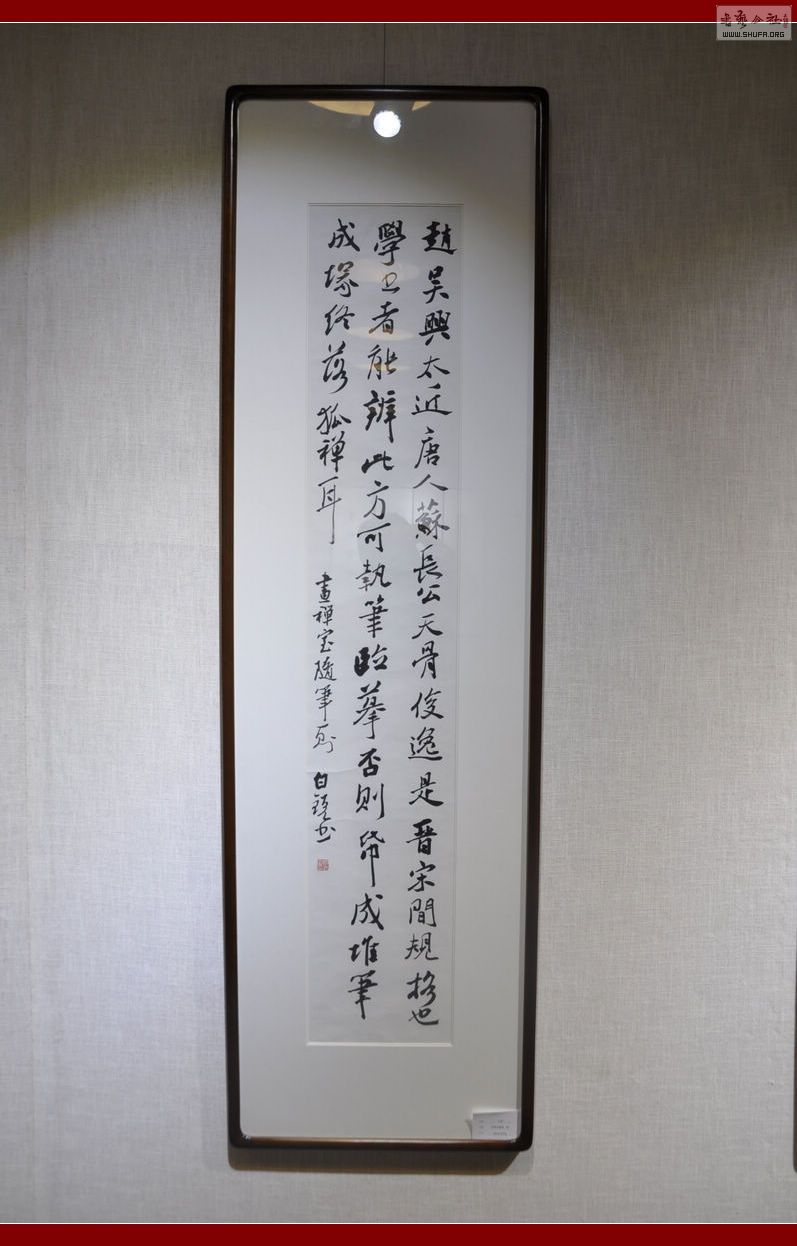 趙吳興太近唐人蘇長公天骨俊逸是晉宋間規格也
學書者能辨此方可執筆臨摹否則帋成堆筆
成塚終落狐禅耳
畫禅室隨筆一則 白鋭书
书艺公社
WWW.SHUFA.ORG